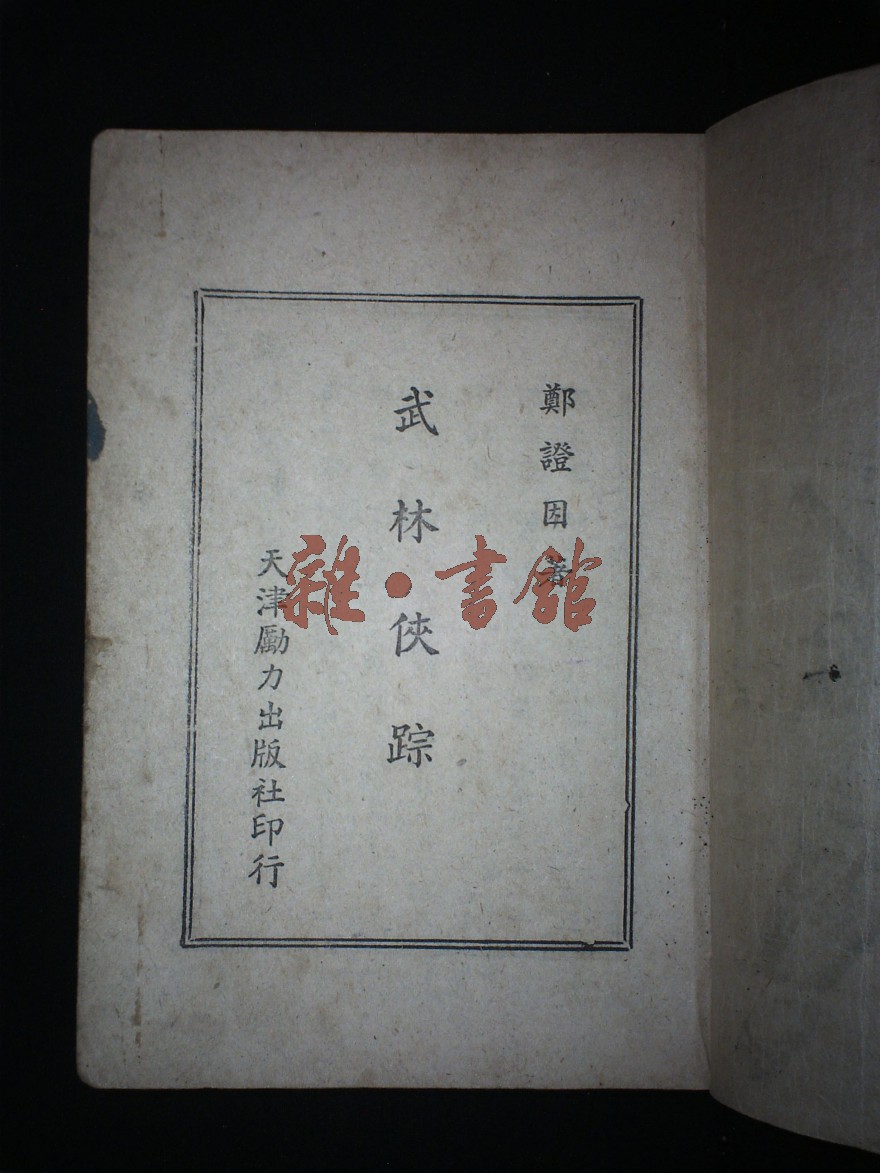 鄭證因著
武林俠踪
天津勵力出版社印行
雜·書館